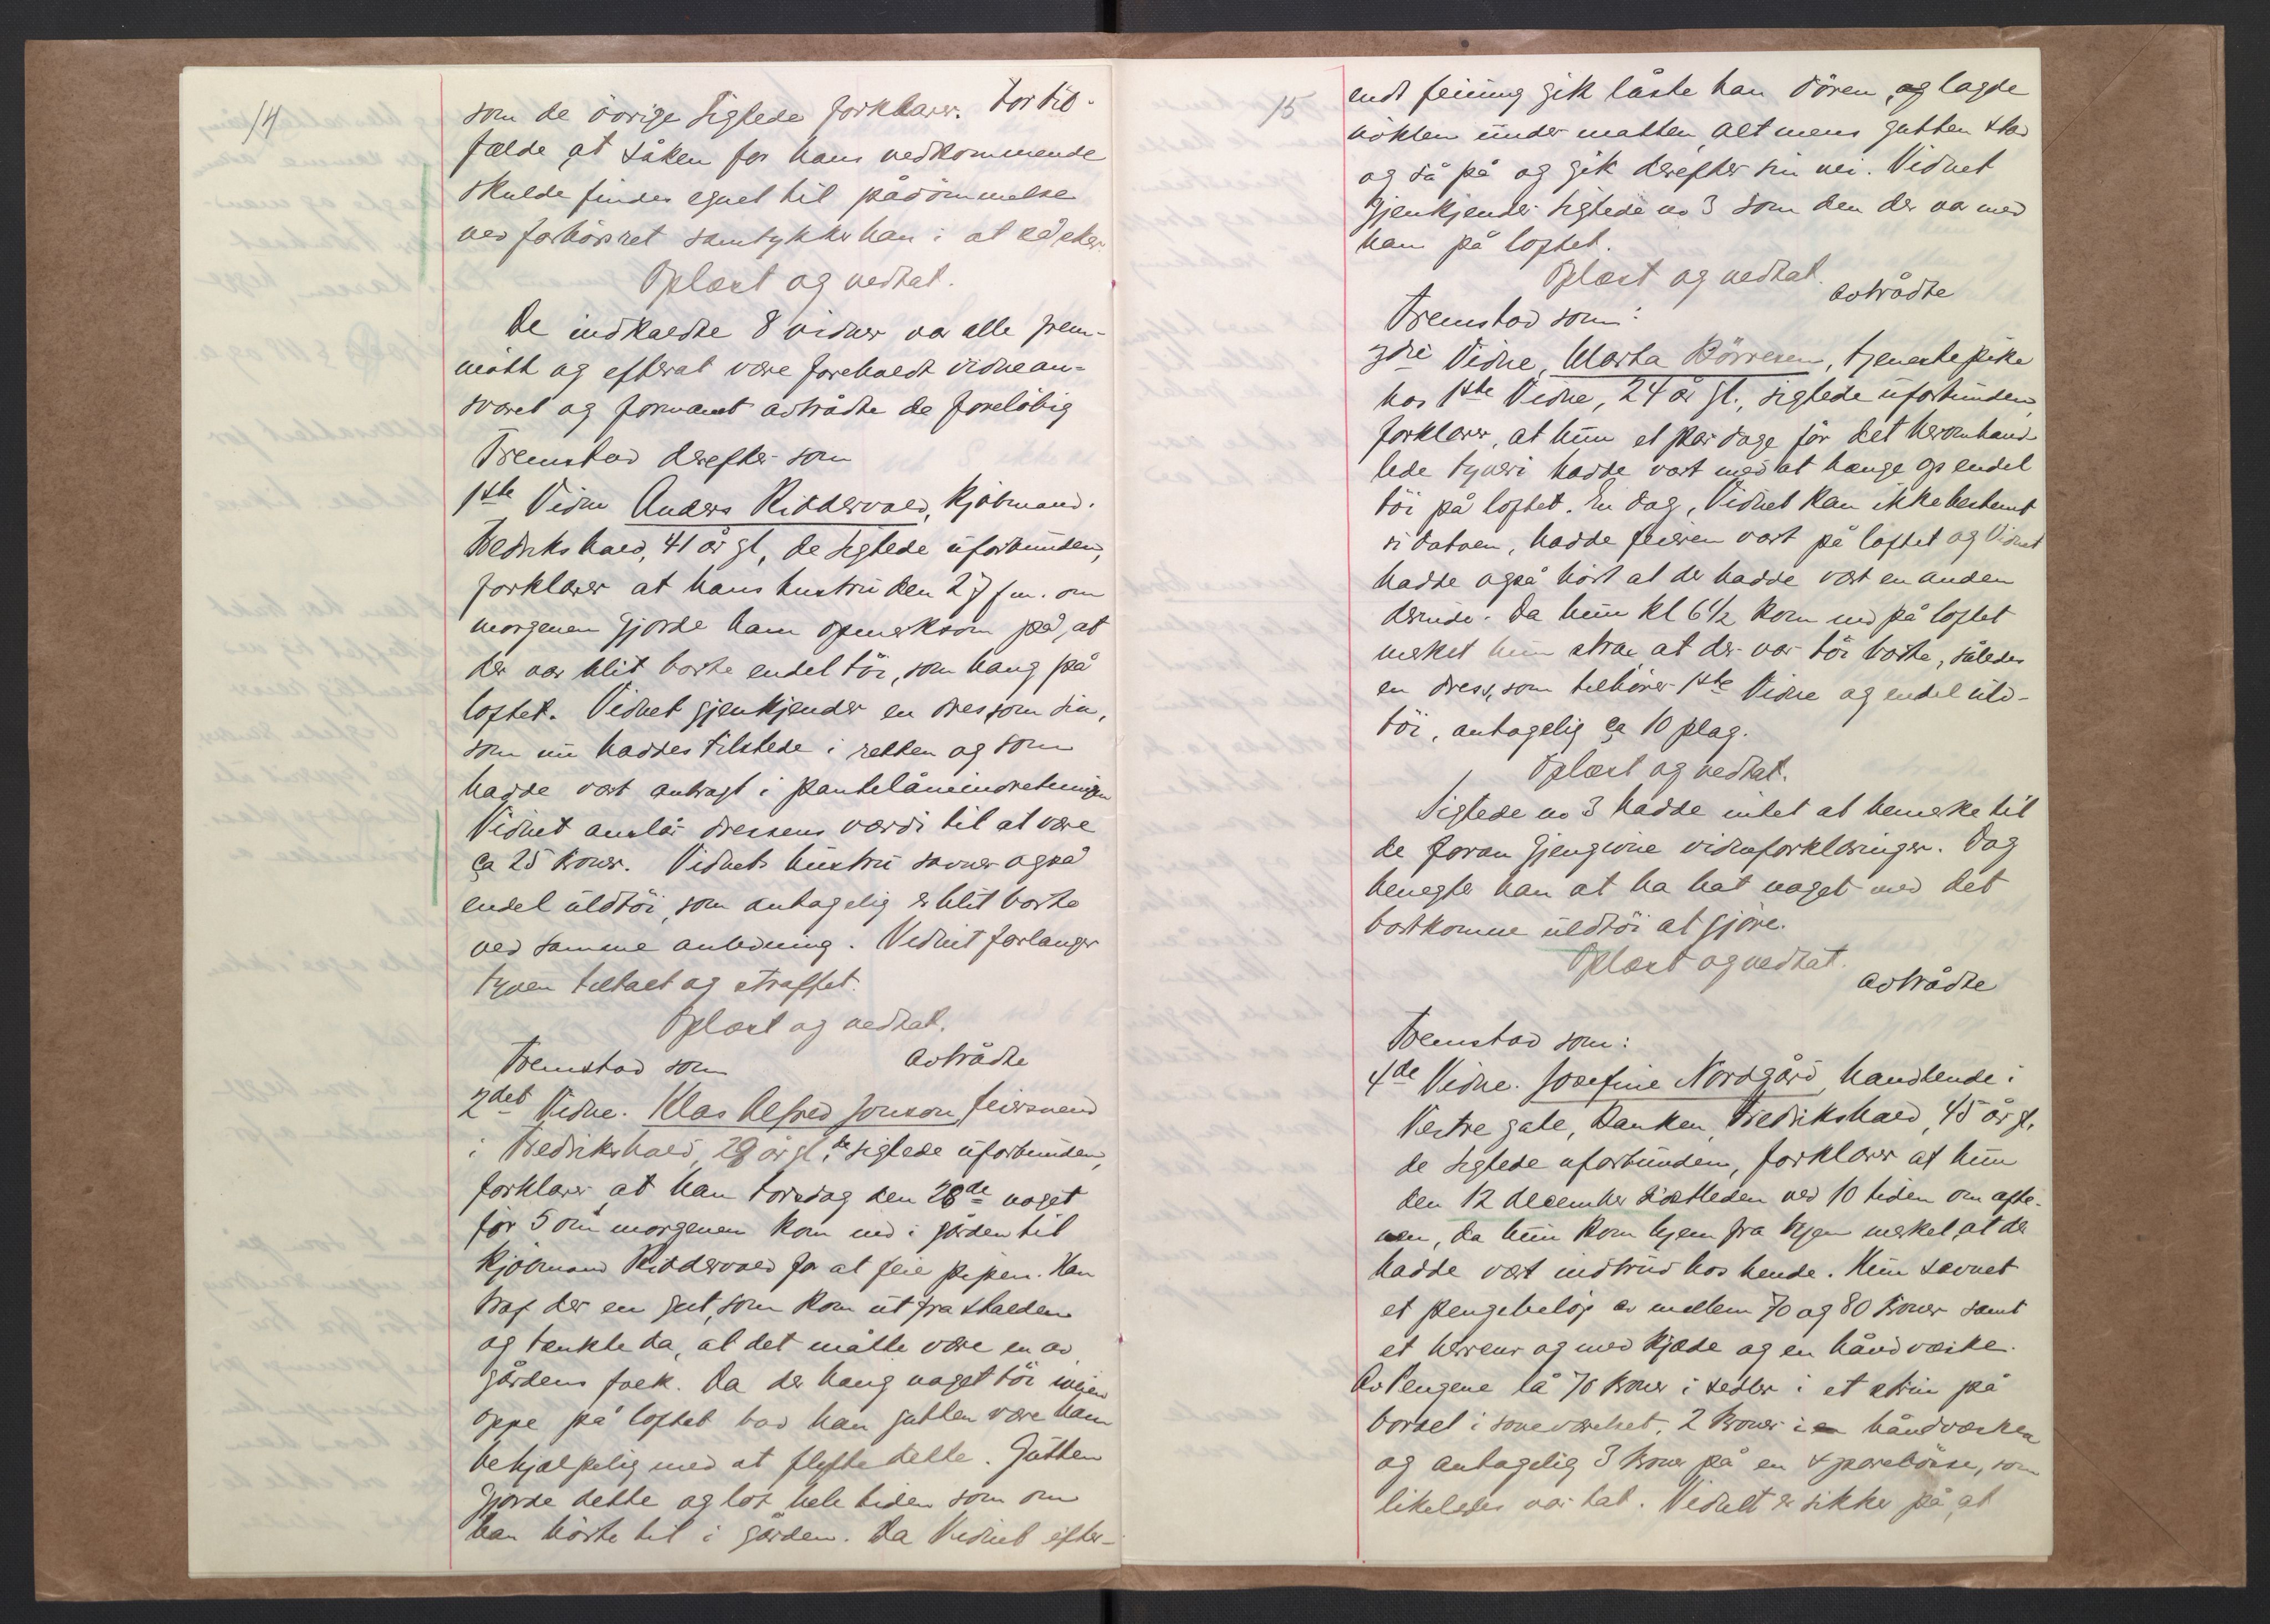 14
som de övrige sigtede forklarer. For til-
fælde at såken for hans vedkommende
skulde findes egnet til pådömmelse
ved forhörsret samtykker han i at så sker.
Oplæst og vedtat.
De indkaldte 8 vidner var alle frem-
mött og efterat være foreholdt vidnean-
svaret og formant avtrådte de foreløbig
Fremstod derefter som
1ste Vidne Anders Riddervold, kjöbmand.
Fredrikshald, 41 år gl, de sigtede uforbunden,
forklarer at hans hustru den 27 f.m. om
morgenen gjorde ham opmerksom på, at
der var blit borte endel töi, som hang på
loftet. Vidnet gjenkjender en dres som sin,
som nu haddes tilstede i retten og som
hadde vært anbragt i pantelåneindretningen
Vidnet anslår dressens værdi til at være
ca 25 kroner. Vidnets hustru savner også
endel uldtöi, som antagelig er blit borte
ved samme anledning. Vidnet forlanger
tyven tiltalt og straffet.
Oplæst og vedtat.
Avtrådte
Fremstod som
2det Vidne. Klas Alfred Jonson, feiersvend
i Fredrikshald, 28 år gl. de sigtede uforbunden,
forklarer, at han torsdag den 28de noget
før 5 om morgenen kom ind i gården til
Kjöbmand Riddervold for at feie pipen. Han
traf der en gut, som kom ut fra stalden
og tænkte da, at det måtte være en av
gårdens folk. Da der hang noget töi
oppe på loftet bad han gutten være ham
behjælpelig med at flytte dette. Gutten
gjorde dette og lot hele tiden som om
han hörte til i gården. Da Vidnet efter-
15
endt feiing gik låste han dören, og lagde
nöklen under matten, alt mens gutten stod
og så på og gik derefter sin vei. Vidnet
gjenkjender sigtede no 3 som den der var med
ham på loftet.
Oplæst og vedtat.
Avtrådte
Fremstod som:
3die Vidne, Marta Börresen, tjenestepike
hos 1ste Vidne, 24 år gl., sigtede uforbunden,
forklarer, at hun et par dage för det heromhand-
lede tyveri hadde vært med at hænge op endel
töi på loftet. En dag, Vidnet kan ikke bestemt
si datoen, hadde feieren vært på loftet og Vidnet
hadde også hört at der hadde vært en anden
derinde. Da hun kl 6½ kom ind på loftet
merket hun strax at der var töi borte, således
en dress, som tilhörer 1ste Vidne og endel uld-
töi, antagelig ca 10 plag.
Oplæst og vedtat.
Sigtede no 3 hadde intet at bemerke til
de foran gjengivne vidneforklaringer. Dog
benegter han at ha hat noget med det
bortkomne uldtöi at gjöre.
Oplæst og vedtat.
Avtrådte
Fremstod som:
4de Vidne. Josefine Nordgård, handlende i
Vestre gate, Banken, Fredrikshald, 45 år gl.
de sigtede uforbunden, forklarer at hun
den 12 december sistleden ved 10 tiden om afte-
nen, da hun kom hjem fra byen merket, at der
hadde vært indbrud hos hende. Hun savnet
et pengebelöp av mellem 70 og 80 kroner samt
et herreur og med kjæde og en håndvæske.
Av Pengene lå 70 kroner i sedler i et skrin på
bordet i soveværelset, 2 kroner i håndvæsken
og antagelig 3 kroner på en sparebösse, som
likeledes var tat. Vidnet er sikker på, at